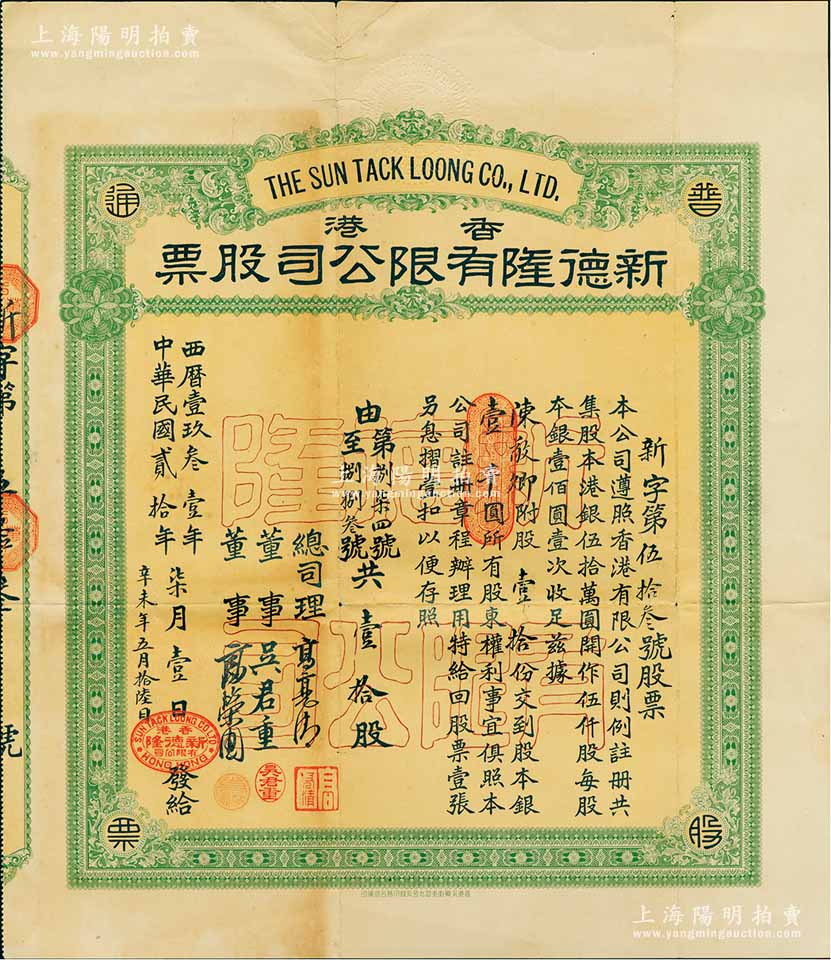 上海陽明拍賣
www.yangmingauction.com
THE SUN TACK LOONG CO., LTD.
香港
新德隆有限公司股票
普
通
股
票
新字第伍拾叁號股票
本公司遵照香港有限公司則例註冊共
集股本港銀伍拾萬圓開作伍仟股每股
本銀壹佰圓壹次收足兹據
陳敘卿附股壹拾份交到股本銀
壹千圓所有股東權利事宜俱照本
公司註冊章程辦理用特給回股票壹張
另息摺壹扣以便存照
由第捌柒四號
至捌捌叁號共壹拾股
總司理
董事吳君重
董事
西曆壹玖叁壹年
中華民國貳拾年
柒月壹日發給
辛未年五月拾陸日
SUN TACK LOONG CO LTD
香港
新德隆
有限公司
HONG KONG
吳君重
新德隆
有限公司
新字第
號
上海陽明拍賣
www.yangmingauction.com
上海陽明拍賣
www.yangmingauction.com